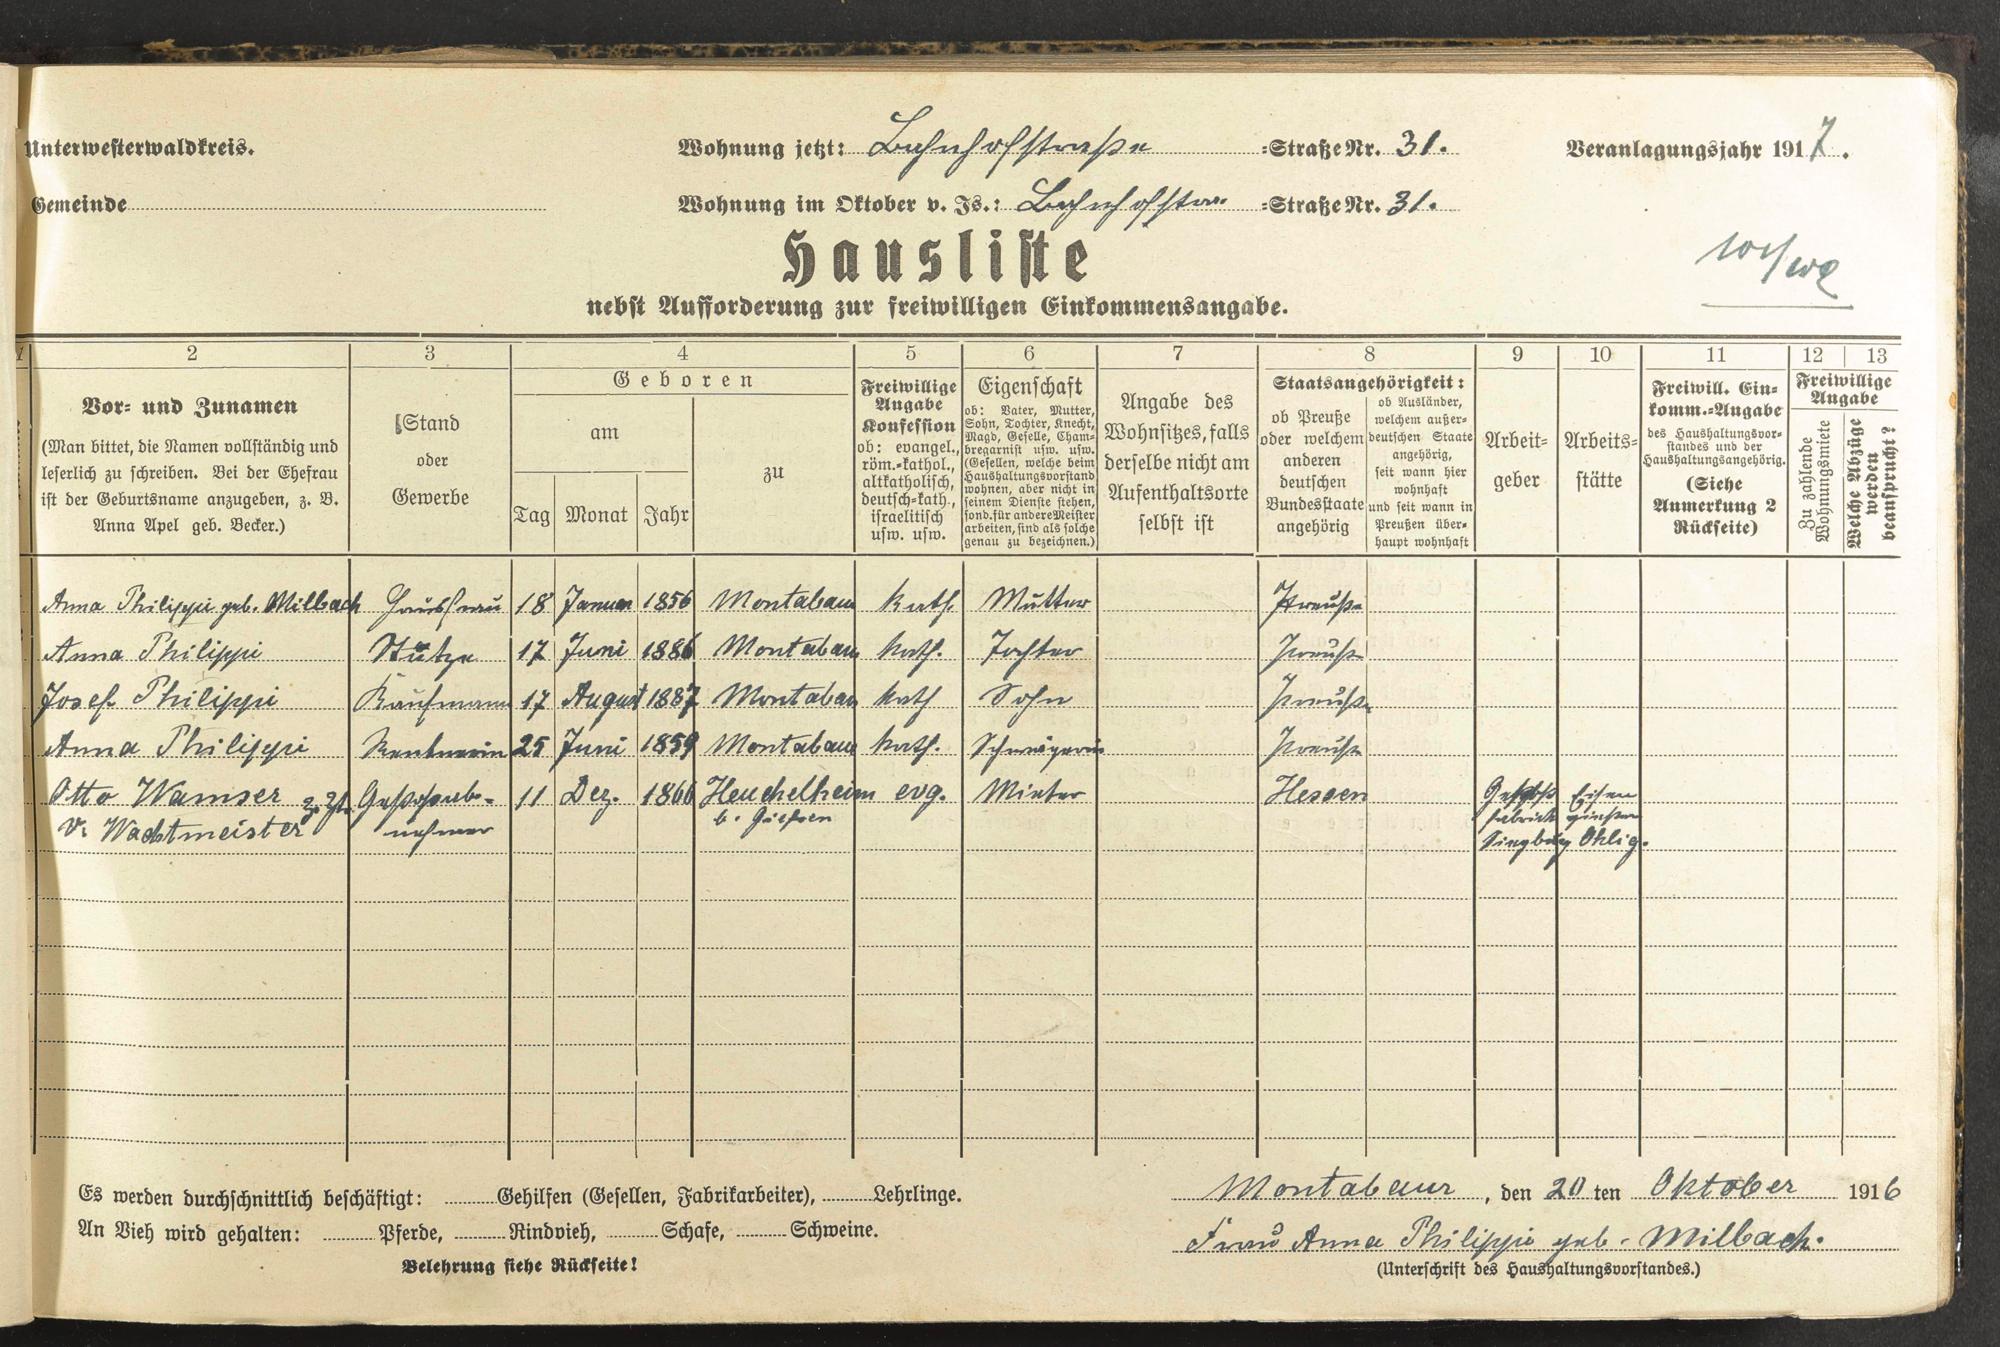 Unterwesterwaldkreis.
Wohnung jetzt: Bahnhofstraße =Straße Nr. 31.
Veranlagungsjahr 1917.
Gemeinde
Wohnung im Oktober v. Js.: Bahnhofstr. =Straße Nr. 31.
Hausliste
nebst Aufforderung zur freiwilligen Einkommensangabe.
1 2 3 4 5 6 7 8 9 10 11 12 13
Vor- und Zunamen
(Man bittet, die Namen vollständig und
leserlich zu schreiben. Bei der Ehefrau
ist der Geburtsname anzugeben, z. B.
Anna Apel geb. Becker.)
Stand
oder
Gewerbe
Geboren
am
Tag Monat Jahr
zu
Freiwillige
Angabe
Konfession
ob: evangel.,
röm.-kathol.,
altkatholisch,
deutsch-kath.,
israelitisch
usw. usw.
Eigenschaft
ob: Vater, Mutter,
Sohn, Tochter, Knecht,
Magd, Geselle, Cham-
bregarnist usw. usw.
(Gesellen, welche beim
Haushaltungsvorstand
wohnen, aber nicht in
seinem Dienste stehen,
sond. für andere Meister
arbeiten, sind als solche
genau zu bezeichnen.)
Angabe des
Wohnsitzes, falls
derselbe nicht am
Aufenthaltsorte
selbst ist
Staatsangehörigkeit:
ob Preuße
oder welchem
anderen
deutschen
Bundesstaate
angehörig
ob Ausländer,
welchem außer-
deutschen Staate
angehörig,
seit wann hier
wohnhaft
und seit wann in
Preußen über-
haupt wohnhaft
Arbeit-
geber
Arbeits-
stätte
Freiwill. Ein-
komm.-Angabe
des Haushaltungsvor-
standes und der
Haushaltungsangehörig.
(Siehe
Anmerkung 2
Rückseite)
Freiwillige
Angabe
Zu zahlende
Wohnungsmiete
Welche Abzüge
werden
beansprucht?
Anna Philippi geb. Milbach Hausfrau 18 Januar 1856 Montabaur Kath. Mutter Preuße
Anna Philippi Stütze 17 Juni 1886 Montabaur Kath. Tochter Preuße
Josef Philippi Kaufmann 17 August 1887 Montabaur Kath Sohn Preuße
Anna Philippi Rentnerin 25 Juni 1859 Montabaur Kath. Schwägerin Preuße
Otto Wamser z. Zt. 11 Dez. 1866 Heuchelheim evg. Mieter Hessen Eisen
V. Wachtmeister nehmer b. Gießen fabrik
Siegburg Ohlig.
Es werden durchschnittlich beschäftigt: Gehilfen (Gesellen, Fabrikarbeiter), Lehrlinge.
An Vieh wird gehalten: Pferde, Rindvieh, Schafe, Schweine.
Belehrung siehe Rückseite!
Montabaur, den 20 ten Oktober 1916
Frau Anna Philippi geb. Milbach.
(Unterschrift des Haushaltungsvorstandes.)